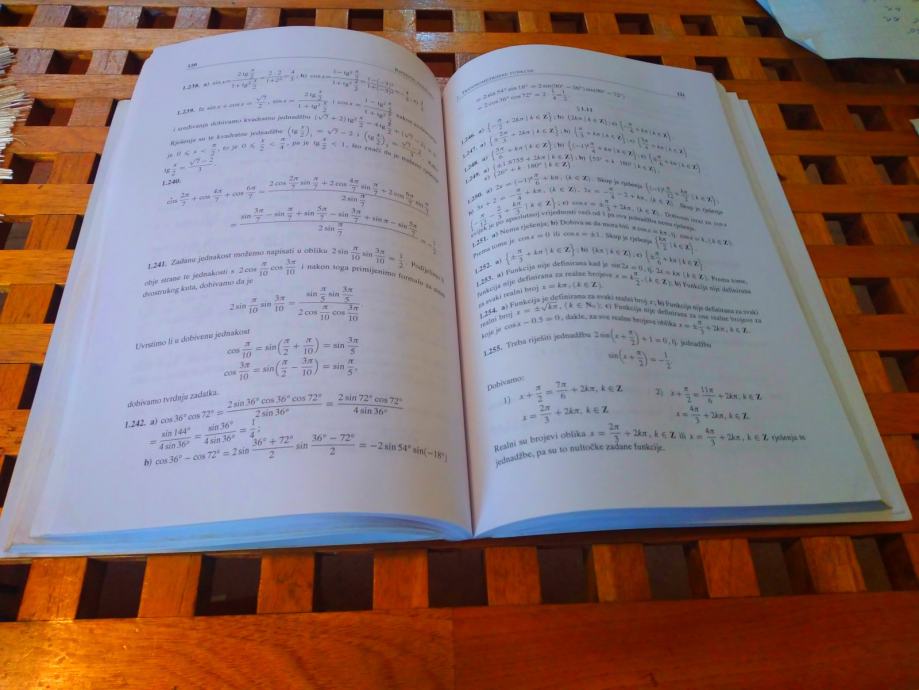 1.238. a) sin x = (2 tg x/2)/(1 + tg² x/2) = (2 · 2)/(1+2²) = 4/5; b) cos x = (1 − tg² x/2)/(1 + tg² x/2)
1.239. Iz sin x + cos x = √7/2, sin x = (2 tg x/2)/(1 + tg² x/2) i cos x = (1 − tg² x/2)/(1 + tg² x/2) nakon
i sređivanja dobivamo kvadratnu jednadžbu (√7 + 2) tg² x/2 − 4 tg x/2 + (√7 − 2)
Rješenja su te kvadratne jednadžbe (tg x/2)₁ = √7 − 2 i (tg x/2)
je 0 ≤ x < π/2, to je 0 ≤ x/2 < π/4, pa je tg x/2 < 1, što znači da je
tg x/2 = (√7 − 2)/3
1.240.
cos 2π/7 + cos 4π/7 + cos 6π/7 = (2 cos 2π/7 sin π/7 + 2 cos 4π/7 sin π/7 + 2 cos 6π/7 sin π/7)/(2 sin π/7)
= (sin 3π/7 − sin π/7 + sin 5π/7 − sin 3π/7 + sin π − sin 5π/7)/(2 sin π/7) = −1/2
1.241. Zadanu jednakost možemo napisati u obliku 2 sin π/10 sin 3π/10 = 1/2. Podijelimo li
obje strane te jednakosti s 2 cos π/10 cos 3π/10 i nakon toga primijenimo formulu za sinus
dvostrukog kuta, dobivamo da je
2 sin π/10 sin 3π/10 = (sin π/5 sin 3π/5)/(2 cos π/10 cos 3π/10).
Uvrstimo li u dobivenu jednakost
cos π/10 = sin(π/2 + π/10) = sin 3π/5
cos 3π/10 = sin(π/2 − 3π/10) = sin π/5,
dobivamo tvrdnju zadatka.
1.242. a) cos 36° cos 72° = (2 sin 36° cos 36° cos 72°)/(2 sin 36°) = (2 sin 72° cos 72°)/(4 sin 36°)
= sin 144°/(4 sin 36°) = sin 36°/(4 sin 36°) = 1/4;
b) cos 36° − cos 72° = 2 sin (36° + 72°)/2 sin (36° − 72°)/2 = −2 sin 54° sin(−18°)
TRIGONOMETRIJSKE FUNKCIJE
= 2 sin 54° sin 18° = 2 sin(90° − 36°) sin(90° − 72°)
= 2 cos 36° cos 72° = 2 · 1/4 = 1/2.
§ 1.11
1.246. a)
1.247. a)
1.248. a)
1.249. a) {±1.8755 + 2kπ | k ∈ Z}
c) {26° + k · 180° | k ∈ Z}
1.250. a) 2x = (−1)ᵏ π/6 + kπ, (k ∈ Z). Skup je rješenja
b) 3x + 2 = π/4 + kπ, (k ∈ Z), 3x = π/4 − 2 + kπ, (k ∈ Z). Skup je rješenja
uvijek je po apsolutnoj vrijednosti veći od 1 pa ova jednadžba nema rješenja.
1.251. a) Nema rješenje; b) Dobiva se da mora biti
Prema tome je cos x = 0 ili cos x = ±1. Skup je rješenja {kπ/2 | k ∈ Z}
1.252. a) {±π/3 + kπ | k ∈ Z}; b) {kπ | k ∈ Z}; c)
1.253. a) Funkcija nije definirana kad je sin 2x = 0, tj. 2x = kπ, (k ∈ Z). Prema tome,
funkcija nije definirana za realne brojeve x = kπ/2, (k ∈ Z); b) Funkcija nije definirana
za svaki realni broj x = kπ, (k ∈ Z).
1.254. a) Funkcija je definirana za svaki realni broj x; b) Funkcija nije definirana za svaki
realni broj x = ±√kπ, (k ∈ N₀); c) Funkcija nije definirana za one realne brojeve za
koje je cos x − 0.5 = 0, dakle, za sve realne brojeve oblika x = ±π/3 + 2kπ, k ∈ Z.
1.255. Treba riješiti jednadžbu 2 sin(x + π/2) + 1 = 0, tj. jednadžbu
sin(x + π/2) = −1/2.
Dobivamo:
1) x + π/2 = 7π/6 + 2kπ, k ∈ Z 2) x + π/2 = 11π/6 + 2kπ, k ∈ Z
x = 2π/3 + 2kπ, k ∈ Z x = 4π/3 + 2kπ, k ∈ Z.
Realni su brojevi oblika x = 2π/3 + 2kπ, k ∈ Z ili x = 4π/3 + 2kπ, k ∈ Z rješenja te
jednadžbe, pa su to nultočke zadane funkcije.